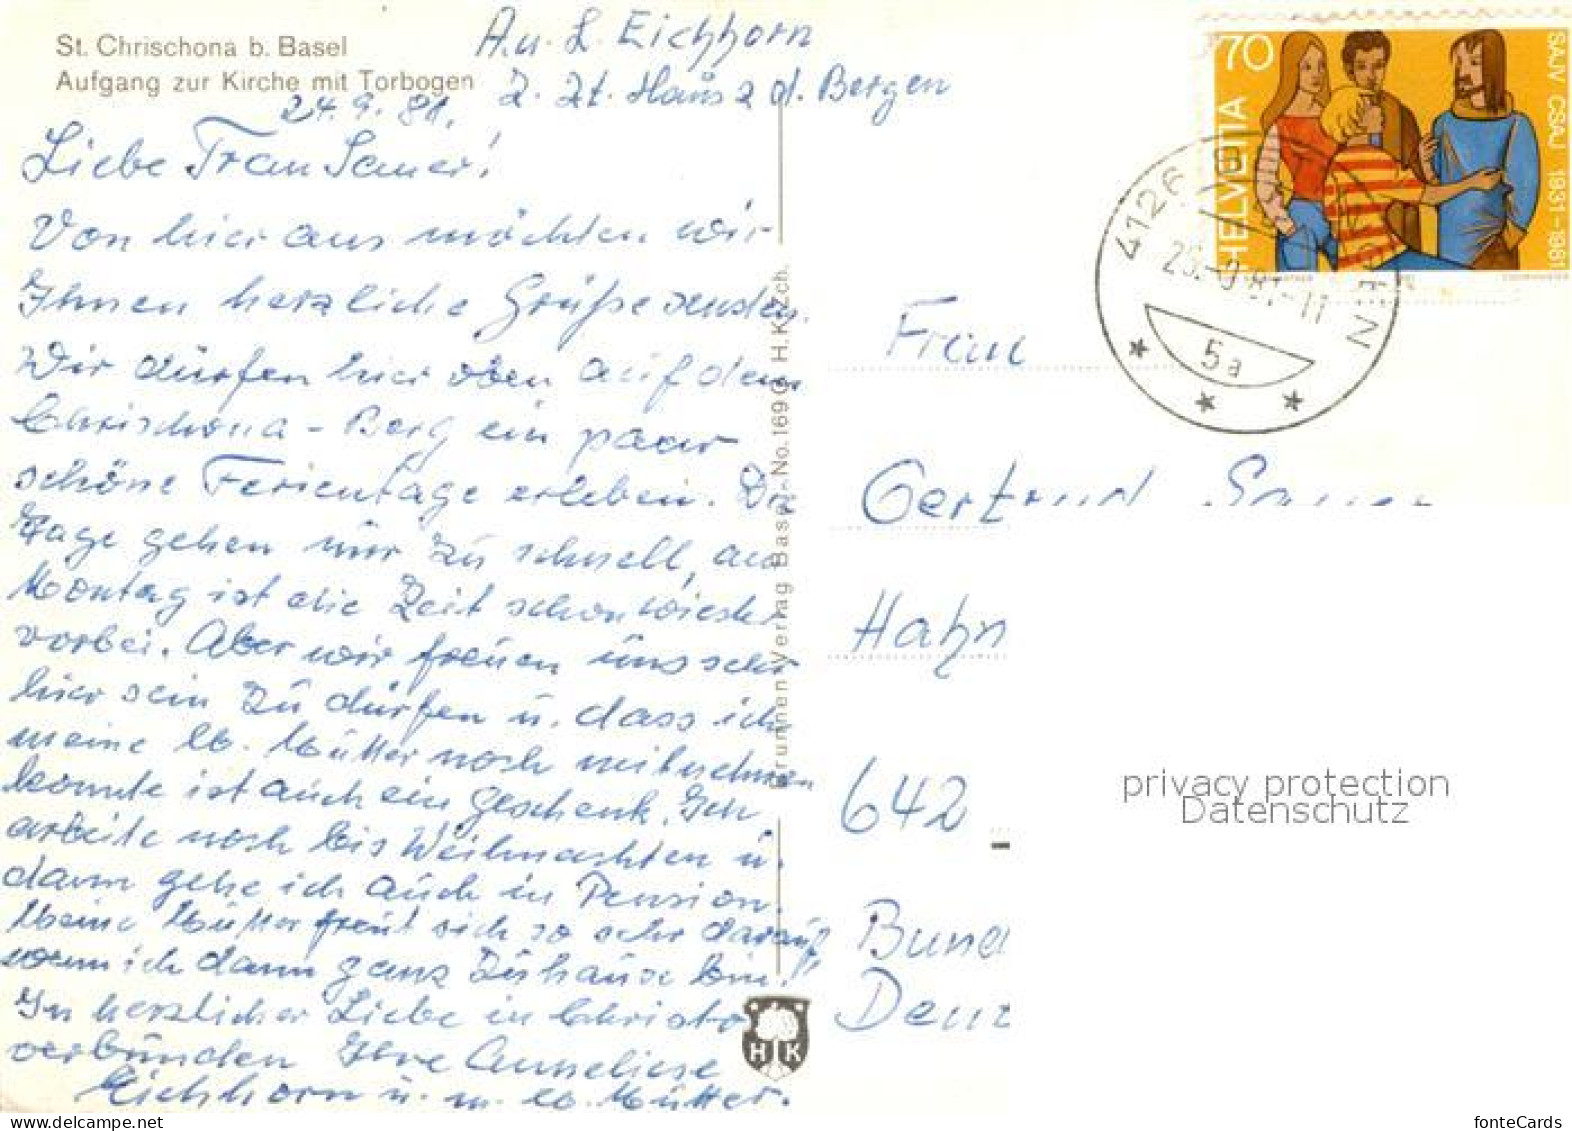 St. Chrischona b. Basel
Aufgang zur Kirche mit Torbogen
A. u. L. Eichhorn
z. Zt. Haus z d. Bergen
24. 9. 81.
Liebe Frau Sauer!
Von hier aus möchten wir
Ihnen herzliche Grüße senden.
Wir dürfen hier oben auf dem
Chrischona-Berg ein paar
schöne Ferientage erleben. Die
Tage gehen nur zu schnell, am
Montag ist die Zeit schon wieder
vorbei. Aber wir freuen uns sehr
hier sein zu dürfen u. dass ich
meine lb. Mutter noch mitnehmen
konnte ist auch ein Geschenk. Ich
arbeite noch bis Weihnachten u.
dann gehe ich auch in Pension.
Meine Mutter freut sich so sehr darauf
wenn ich dann ganz zuhause bin!
In herzlicher Liebe in Christo
verbunden Ihre Anneliese
Eichhorn u. m. lb. Mutter.
Brunnen Verlag Basel-No. 169 H. Kitzch.
HK
70
HELVETIA
SAJV CSAJ 1931-1981
4126
-9.81-11
5a
Frau
Gertrud Sauer
Hahn
642
Bund
Deut
privacy protection
Datenschutz
fonteCards